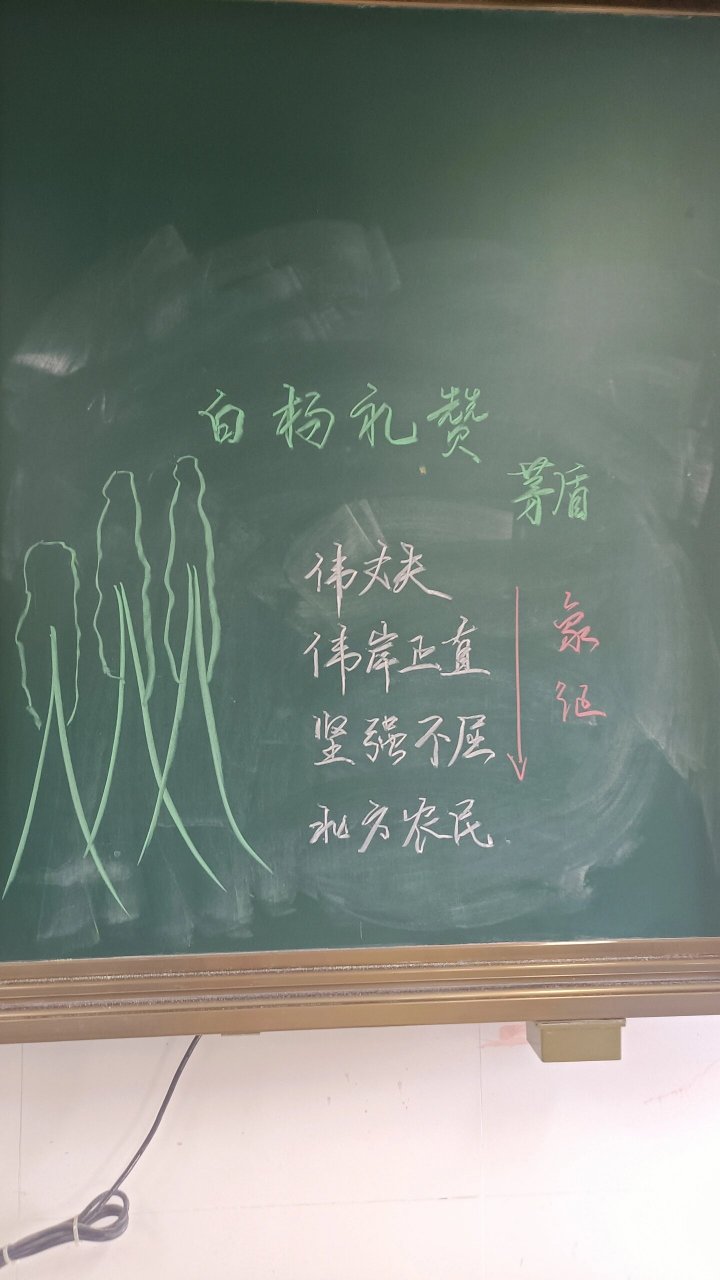 白杨礼赞
茅盾
伟丈夫
伟岸正直
坚强不屈
北方农民
象征